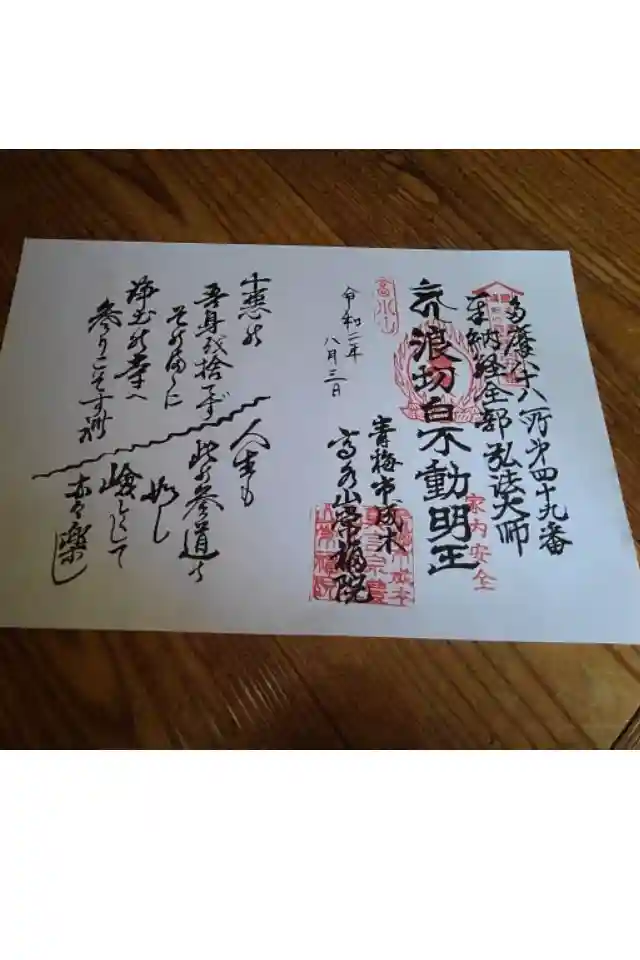 多摩八十八所第四十九番
奉納経全部弘法大師
家内安全
浪切白不動明王
高水山
青梅市成木
高水山常福院
令和二年
八月三日
十悪の
吾身を捨てず
そのまゝに
浄土の寺へ
参りこそすれ
人生も
此の参道の
如し
嶮しくて
亦々楽し